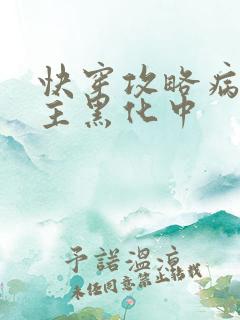 快穿攻略病
主黑化中
予諾溫涼
未经同意禁止转载